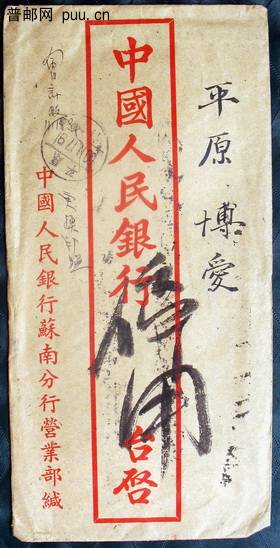 普邮网 puu.cn
平原 博愛
中國人民銀行 台啓
停用
中國人民銀行蘇南分行營業部緘